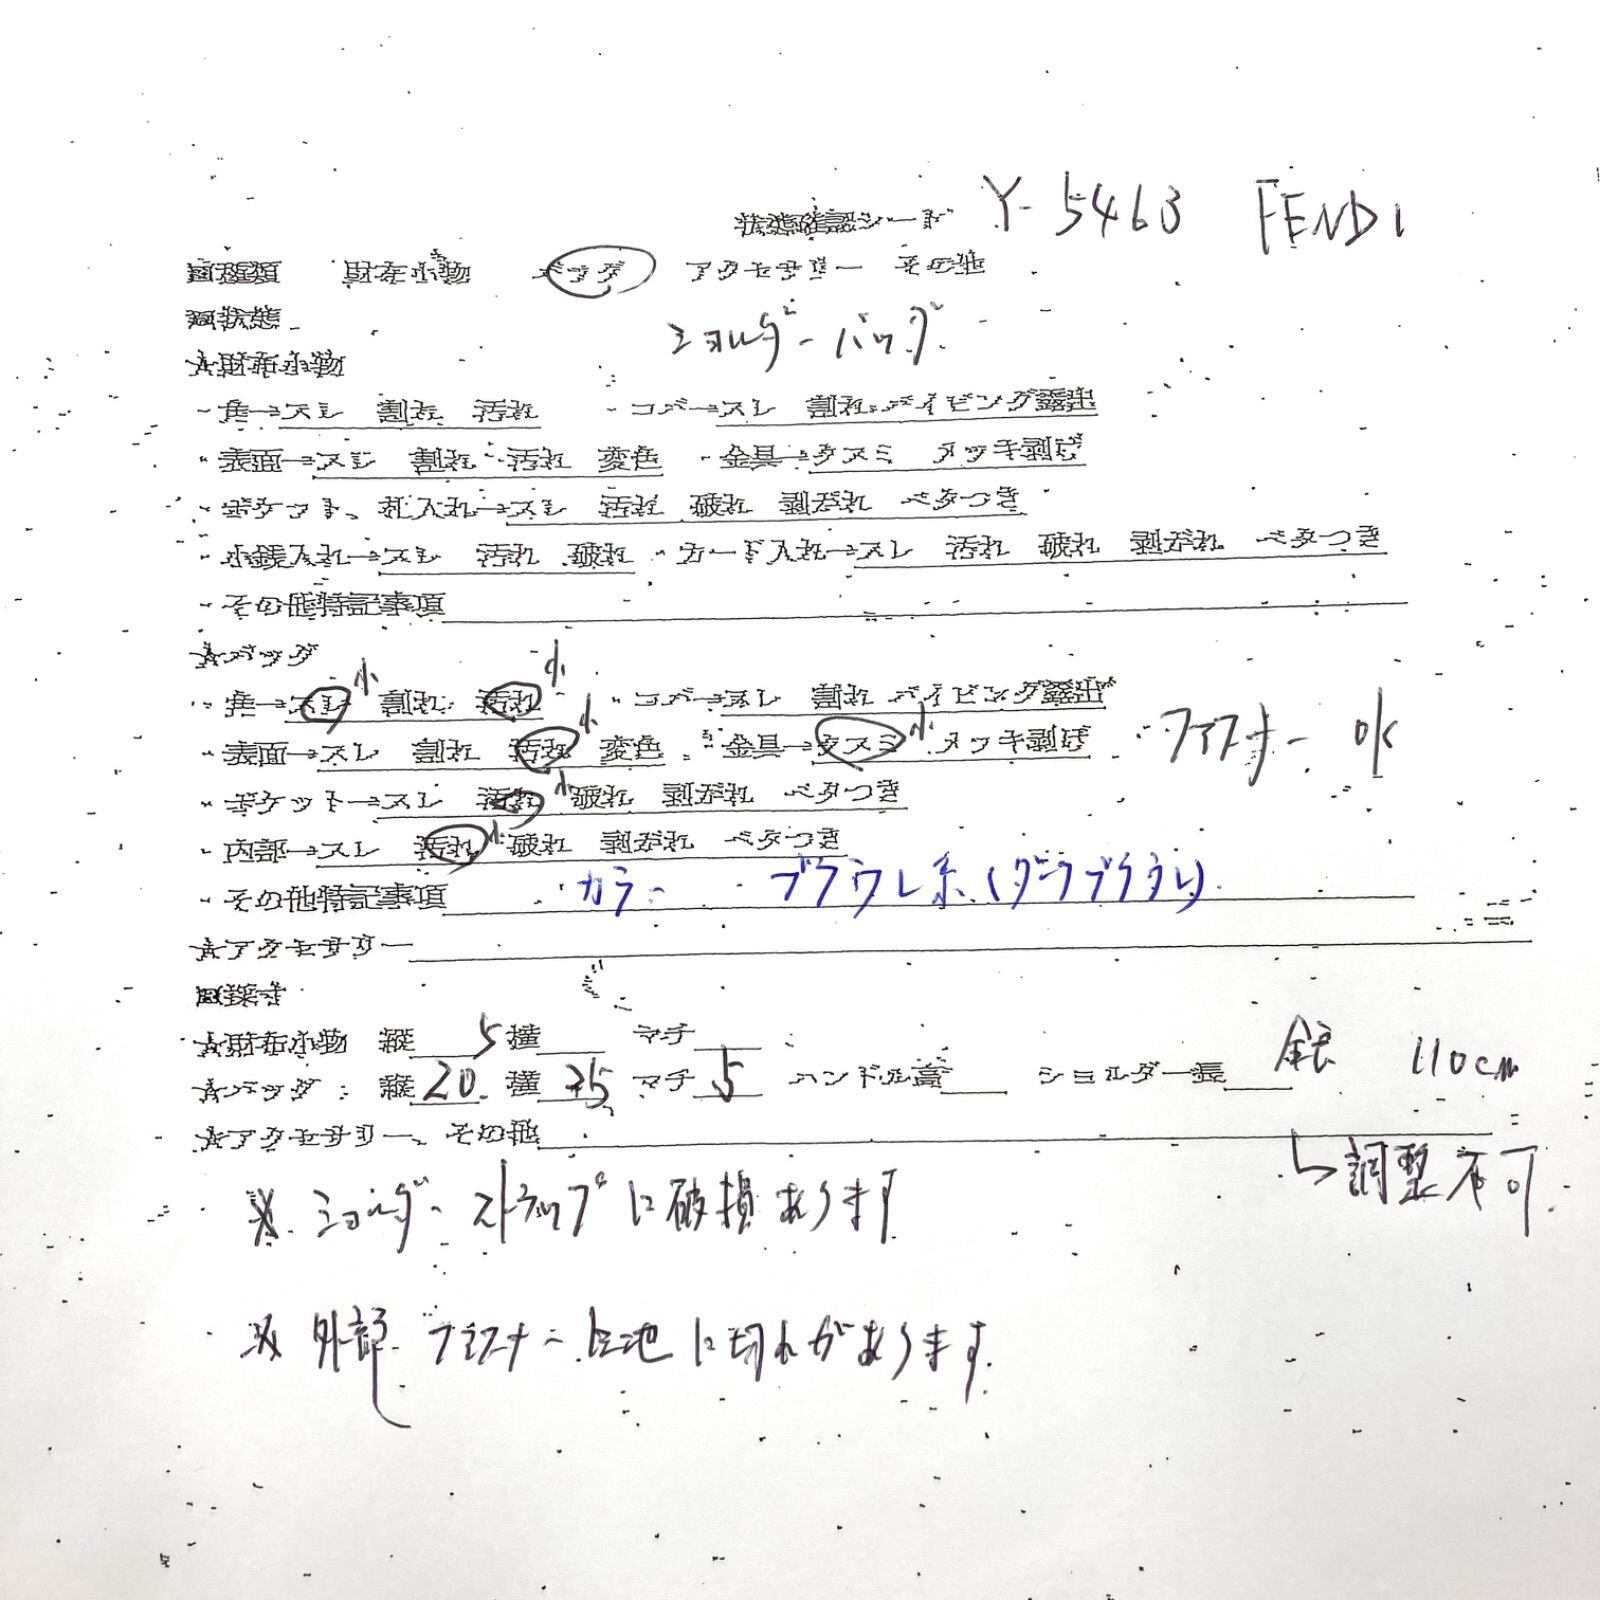 状態確認シート Y-5463 FENDI
■種類 財布小物 バッグ アクセサリー その他
■状態 ショルダーバッグ
★財布小物
・角→スレ 割れ 汚れ ・コバ→スレ 割れ パイピング露出
・表面→スレ 割れ 汚れ 変色 ・金具→クスミ メッキ剥げ
・ポケット、札入れ→スレ 汚れ 破れ 剥がれ ベタつき
・小銭入れ→スレ 汚れ 破れ ・カード入れ→スレ 汚れ 破れ 剥がれ ベタつき
・その他特記事項
★バッグ
・角→スレ小 割れ 汚れ小 ・コバ→スレ 割れ パイピング露出
・表面→スレ 割れ 汚れ小 変色 ・金具→クスミ小 メッキ剥げ ファスナー OK
・ポケット→スレ 汚れ小 破れ 剥がれ ベタつき
・内部→スレ 汚れ小 破れ 剥がれ ベタつき
・その他特記事項 カラー ブラウン系(ダークブラウン)
★アクセサリー
■採寸
★財布小物 縦 5 横 マチ
★バッグ : 縦 20 横 25 マチ 5 ハンドル高 ショルダー長 全長 110cm
★アクセサリー、その他 ↳調整不可
※ショルダーストラップに破損あります
※外部ファスナー生地に切れがあります